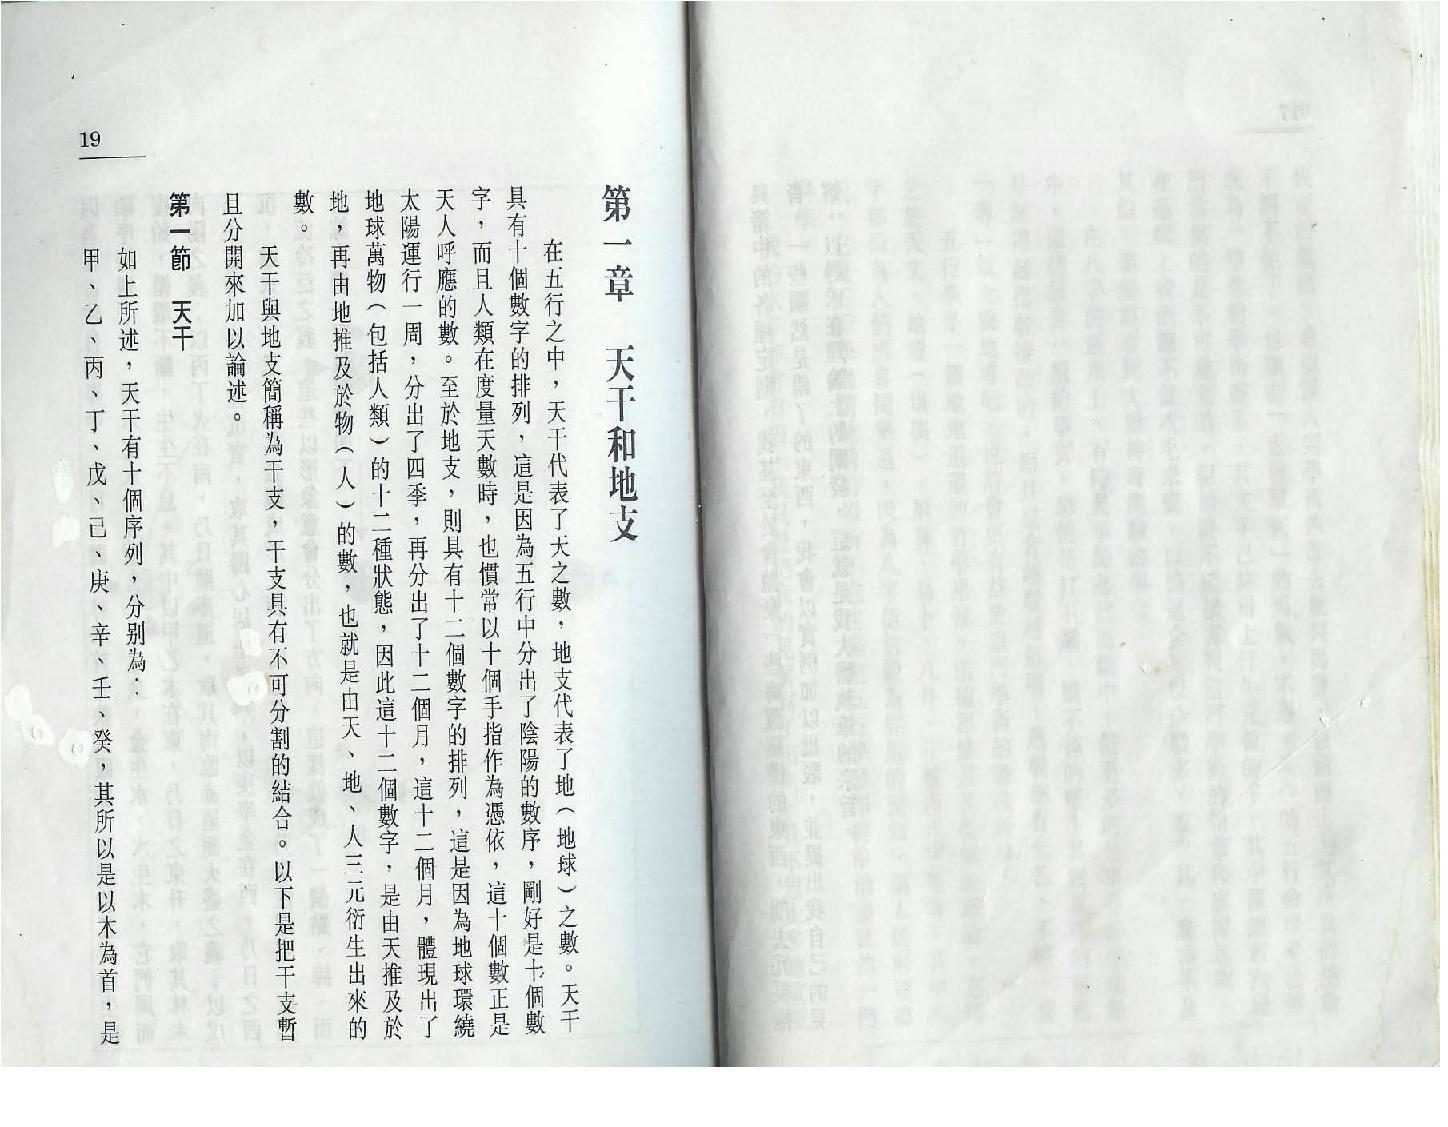 第一章　天干和地支
在五行之中，天干代表了天之數，地支代表了地（地球）之數。天干
具有十個數字的排列，這是因為五行中分出了陰陽的數序，剛好是十個數
字，而且人類在度量天數時，也慣常以十個手指作為憑依，這十個數正是
天人呼應的數。至於地支，則具有十二個數字的排列，這是因為地球環繞
太陽運行一周，分出了四季，再分出了十二個月，這十二個月，體現出了
地球萬物（包括人類）的十二種狀態，因此這十二個數字，是由天推及於
地，再由地推及於物（人）的數，也就是由天、地、人三元衍生出來的
數。
天干與地支簡稱為干支，干支具有不可分割的結合。以下是把干支暫
且分開來加以論述。
第一節　天干
如上所述，天干有十個序列，分別為：
甲、乙、丙、丁、戊、己、庚、辛、壬、癸，其所以是以木為首，是
19